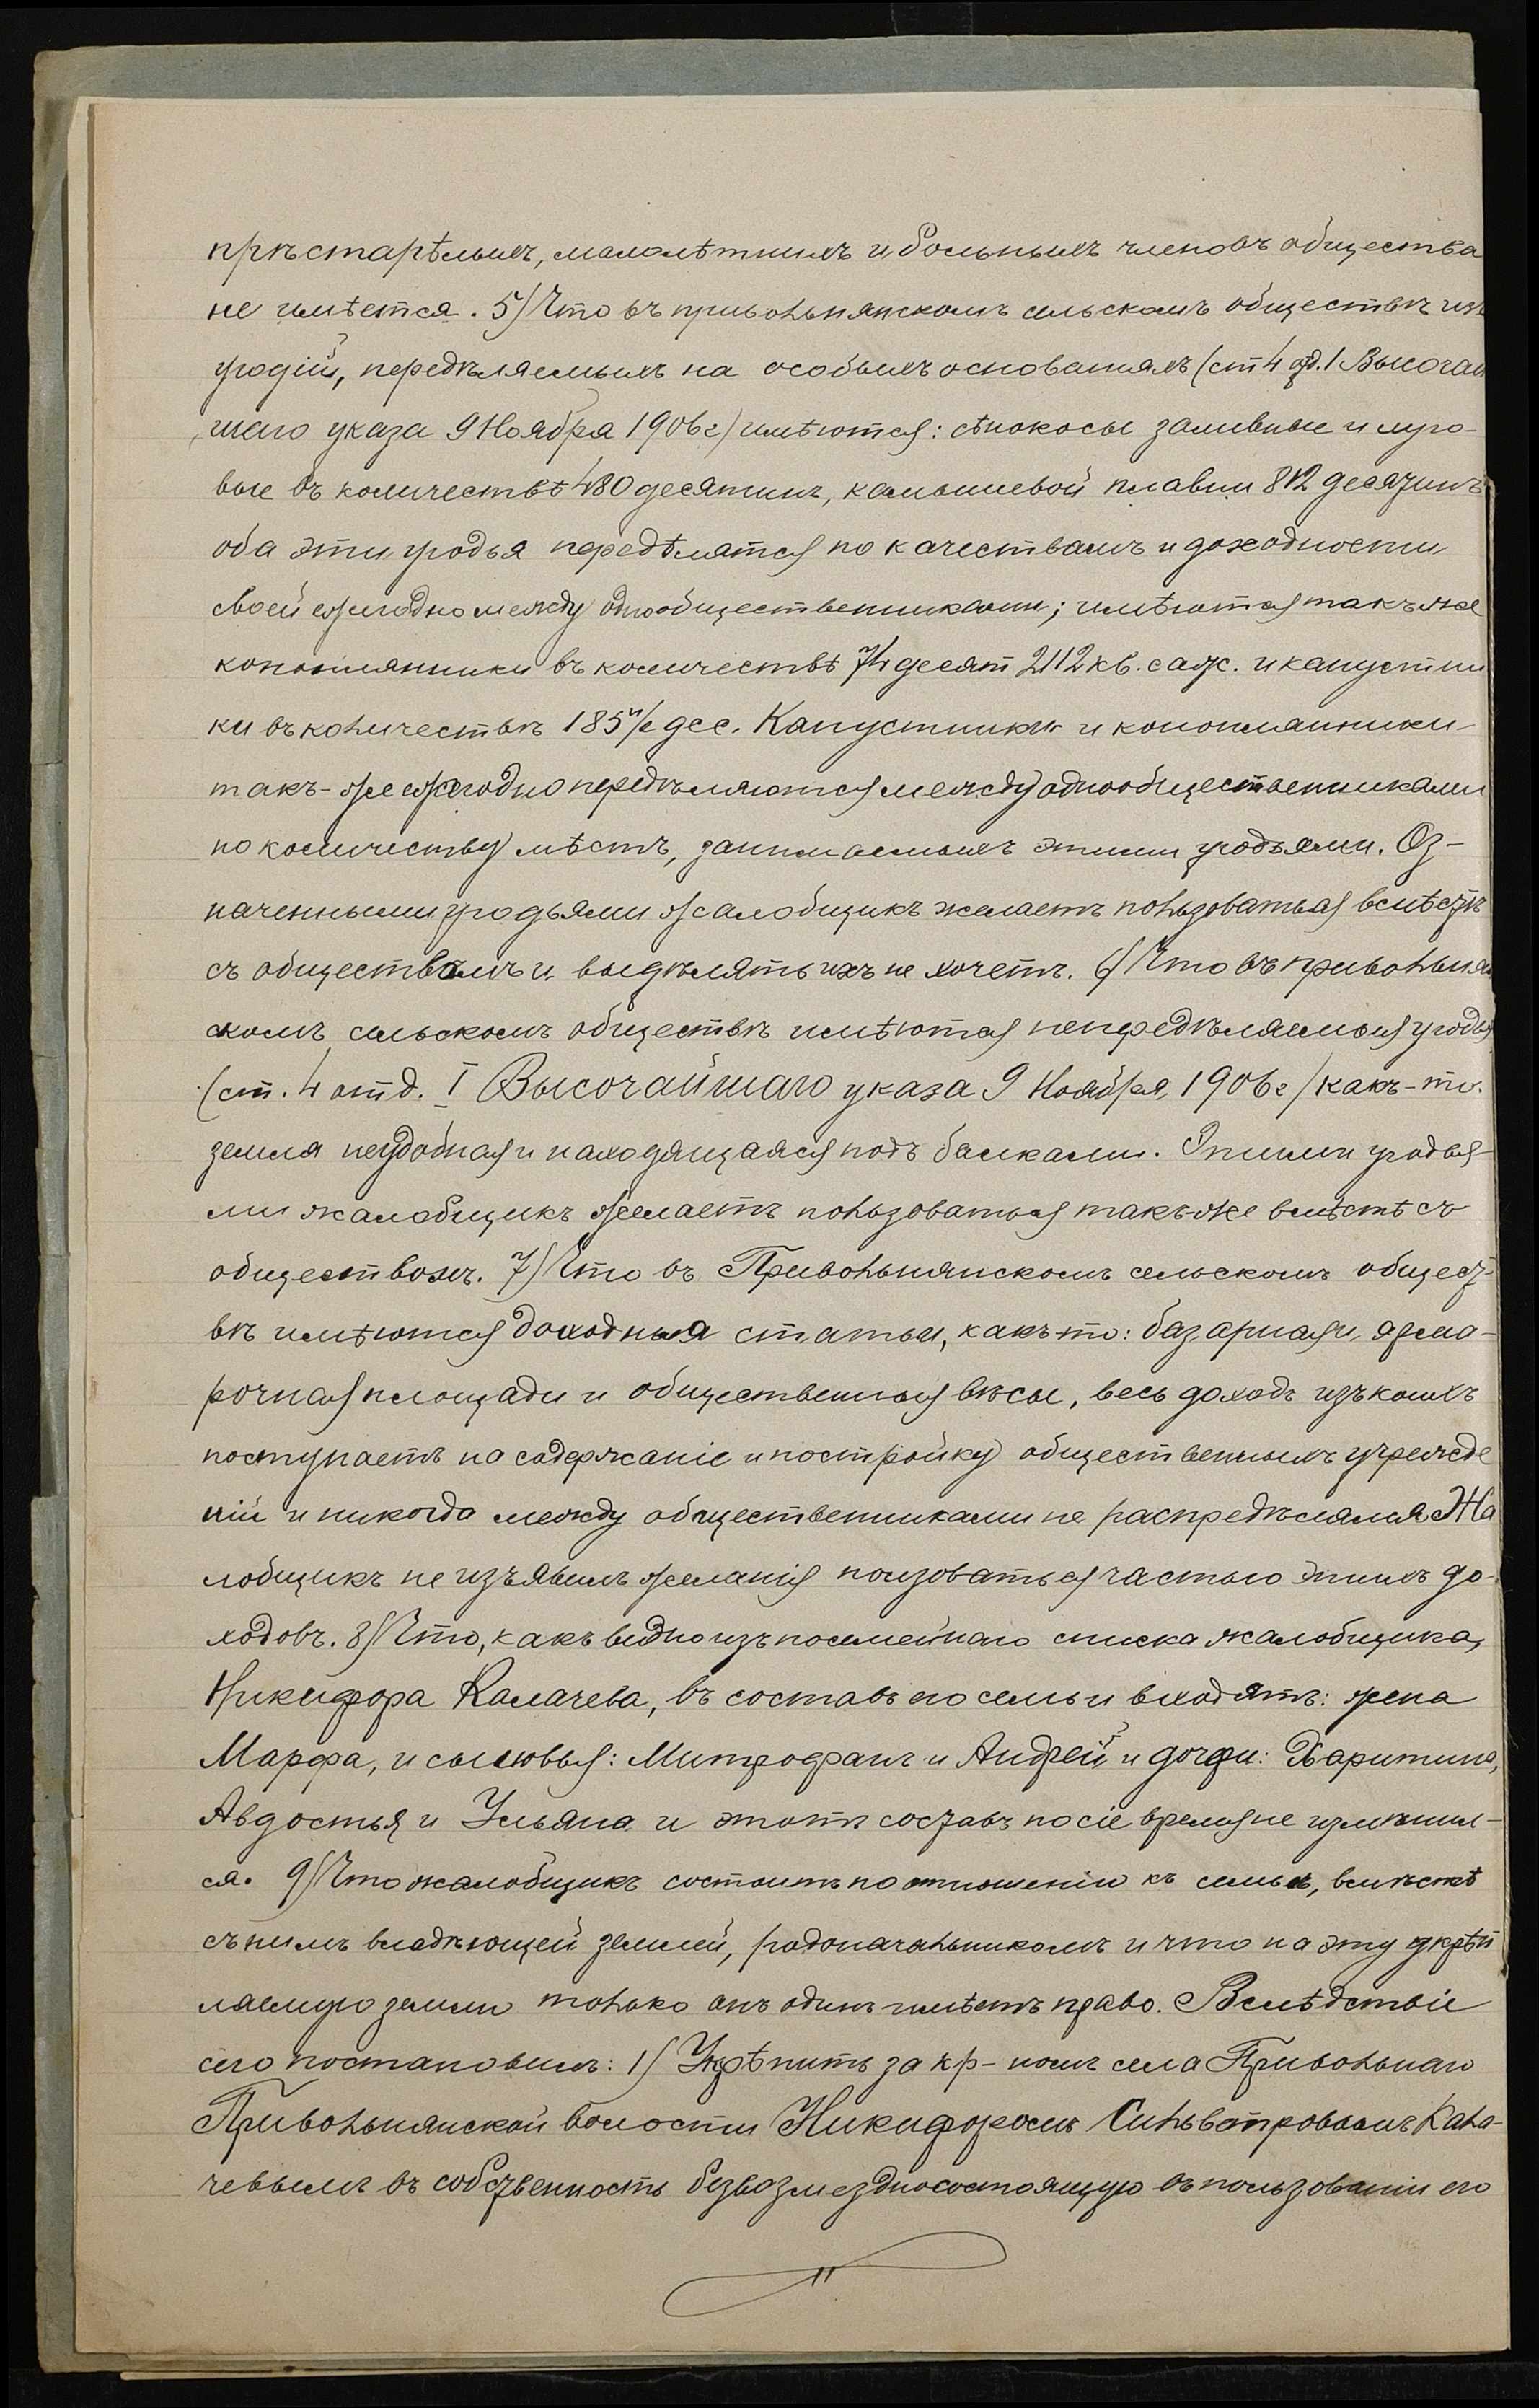 прѣстарѣлыхъ, малолѣтнихъ и больныхъ членовъ общества
не имѣется. 5) Что въ привольнянскомъ сельскомъ обществѣ изъ
угодій, передѣляемыхъ на особыхъ основаніяхъ (ст 4 отд. I Высочай
шаго указа 9 Ноября 1906 г) имѣются: сѣнокосы заливные и луго-
вые въ количествѣ 480 десятинъ, камышевой плавни 812 десятинъ
оба эти угодья передѣлятся по качествамъ и доходности
своей ежегодно между однообщественниками; имѣются такъ же
конопляники въ количествѣ 74 десят 2112 кв. саж. и капустни
ки въ количествѣ 185 1/2 дес. Капустники и конопляники-
такъ-же ежегодно передѣляются между однообщественниками
по количеству мѣстъ, занимаемыхъ этими угодьями. Оз-
наченными угодьями жалобщикъ желаетъ пользоваться вмѣстѣ
съ обществомъ и выдѣлять ихъ не хочетъ. 6) Что въ привольнян
скомъ сельскомъ обществѣ имѣются непередѣляемыя угодья
(ст. 4 отд. I Высочайшаго указа 9 Ноября 1906 г) какъ-то.
земля неудобная и находящаяся подъ балками. Этими угодья-
ми жалобщикъ желаетъ пользоваться такъ-же вмѣстѣ съ
обществомъ. 7) Что въ Привольнянскомъ сельскомъ общест-
вѣ имѣются доходныя статьи, какъ-то: базарная и ярма-
рочная площади и общественныя вѣсы, весь доходъ изъ коихъ
поступаетъ на содержаніе и постройку общественныхъ учрежде
ній и никогда между общественниками не распредѣлялся. Жа
лобщикъ не изъявилъ желанія ползоваться частью этихъ до-
ходовъ. 8) Что, какъ видно изъ посемейнаго списка жалобщика,
Никифора Калачева, въ составъ его семьи входятъ: жена
Марфа, и сыновья: Митрофанъ и Андрей и дочери: Харитина,
Авдостья и Ульяна и этотъ составъ по сіе время не измѣнил-
ся. 9) Что жалобщикъ состоитъ по отношенію къ семьѣ, вмѣстѣ
съ нимъ владѣющей землей, родоначальникомъ и что на эту укрѣп
ляемую землю только онъ одинъ имѣетъ право. Вслѣдствіе
сего постановилъ: 1) Укрѣпить за кр-номъ села Привольнаго
Привольнянской волости Никифоромъ Сильвотровымъ Кала-
чевымъ въ собственность безвозмездно состоящую въ пользованіи его